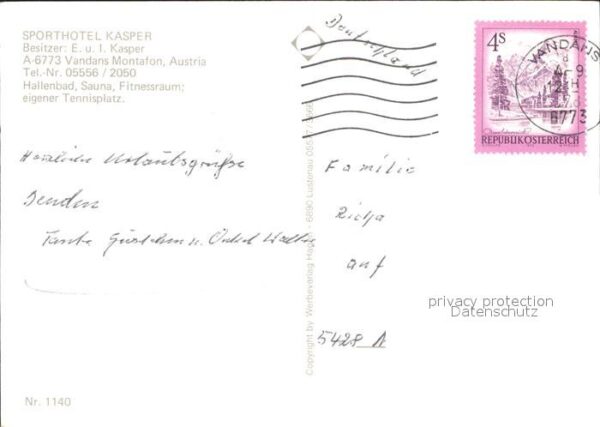 SPORTHOTEL KASPER
Besitzer: E. u. I. Kasper
A-6773 Vandans Montafon, Austria
Tel.-Nr. 05556 / 2050
Hallenbad, Sauna, Fitnessraum;
eigener Tennisplatz.
Herzliche Urlaubsgrüße
Senden
Tante Gustchen u. Onkel Walter
Nr. 1140
Copyright by Werbeverlag 6890 Lustenau
Deutschland
4S
REPUBLIK ÖSTERREICH
VANDANS
6773
Familie
auf
5428 N
privacy protection
Datenschutz